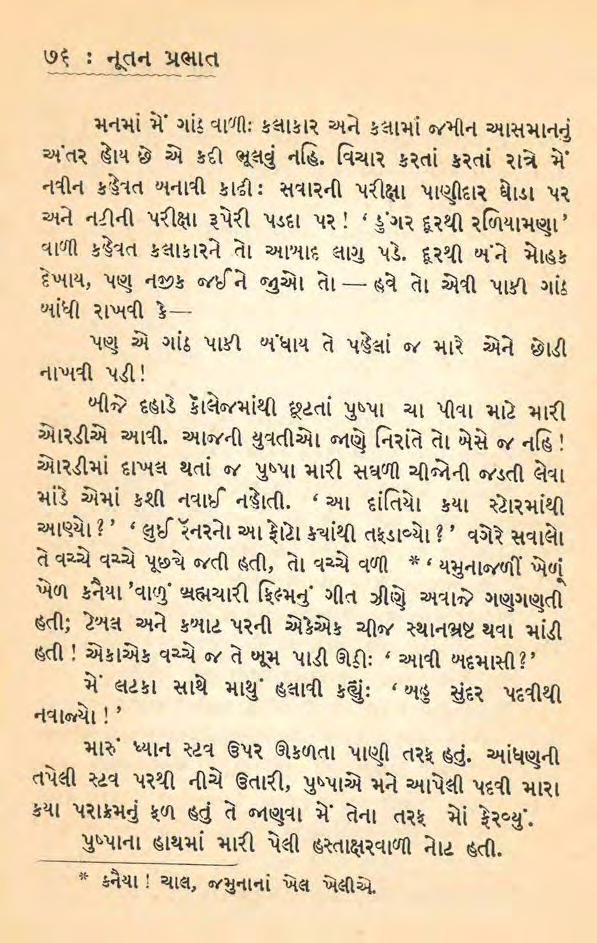 ૭૬ : નૂતન પ્રભાત
મનમાં મેં ગાંઠ વાળી: કલાકાર અને કલામાં જમીન આસમાનનું
અંતર હોય છે એ કદી ભૂલવું નહિ. વિચાર કરતાં કરતાં રાત્રે મેં
નવીન કહેવત બનાવી કાઢી: સવારની પરીક્ષા પાણીદાર ઘોડા પર
અને નટીની પરીક્ષા રૂપેરી પડદા પર! ‘ ડુંગર દૂરથી રળિયામણા’
વાળી કહેવત કલાકારને તો આબાદ લાગુ પડે. દૂરથી બંને મોહક
દેખાય, પણ નજીક જઈને જુઓ તો — હવે તો એવી પાકી ગાંઠ
બાંધી રાખવી કે—
પણ એ ગાંઠ પાકી બંધાય તે પહેલાં જ મારે એને છોડી
નાખવી પડી!
બીજે દહાડે કૉલેજમાંથી છૂટતાં પુષ્પા ચા પીવા માટે મારી
ઓરડીએ આવી. આજની યુવતીઓ જાણે નિરાંતે તો બેસે જ નહિ!
ઓરડીમાં દાખલ થતાં જ પુષ્પા મારી સઘળી ચીજોની જડતી લેવા
માંડે એમાં કશી નવાઈ નહોતી. ‘ આ દાંતિયો કયા સ્ટોરમાંથી
આણ્યો?’ ‘ લુઈ રૅનરનો આ ફોટો ક્યાંથી તફડાવ્યો?’ વગેરે સવાલો
તે વચ્ચે વચ્ચે પૂછ્યે જતી હતી, તો વચ્ચે વળી *‘ યમુનાજળીં ખેળૂં
ખેળ કનૈયા ’વાળું બ્રહ્મચારી ફિલ્મનું ગીત ઝીણે અવાજે ગણગણતી
હતી; ટેબલ અને કબાટ પરની એકેએક ચીજ સ્થાનભ્રષ્ટ થવા માંડી
હતી! એકાએક વચ્ચે જ તે બૂમ પાડી ઊઠી: ‘ આવી બદમાસી?’
મેં લટકા સાથે માથું હલાવી કહ્યું: ‘ બહુ સુંદર પદવીથી
નવાજ્યો!’
મારું ધ્યાન સ્ટવ ઉપર ઊકળતા પાણી તરફ હતું. આંધણની
તપેલી સ્ટવ પરથી નીચે ઉતારી, પુષ્પાએ મને આપેલી પદવી મારા
કયા પરાક્રમનું ફળ હતું તે જાણવા મેં તેના તરફ મોં ફેરવ્યું.
પુષ્પાના હાથમાં મારી પેલી હસ્તાક્ષરવાળી નોટ હતી.
* કનૈયા! ચાલ, જમુનાનાં ખેલ ખેલીએ.